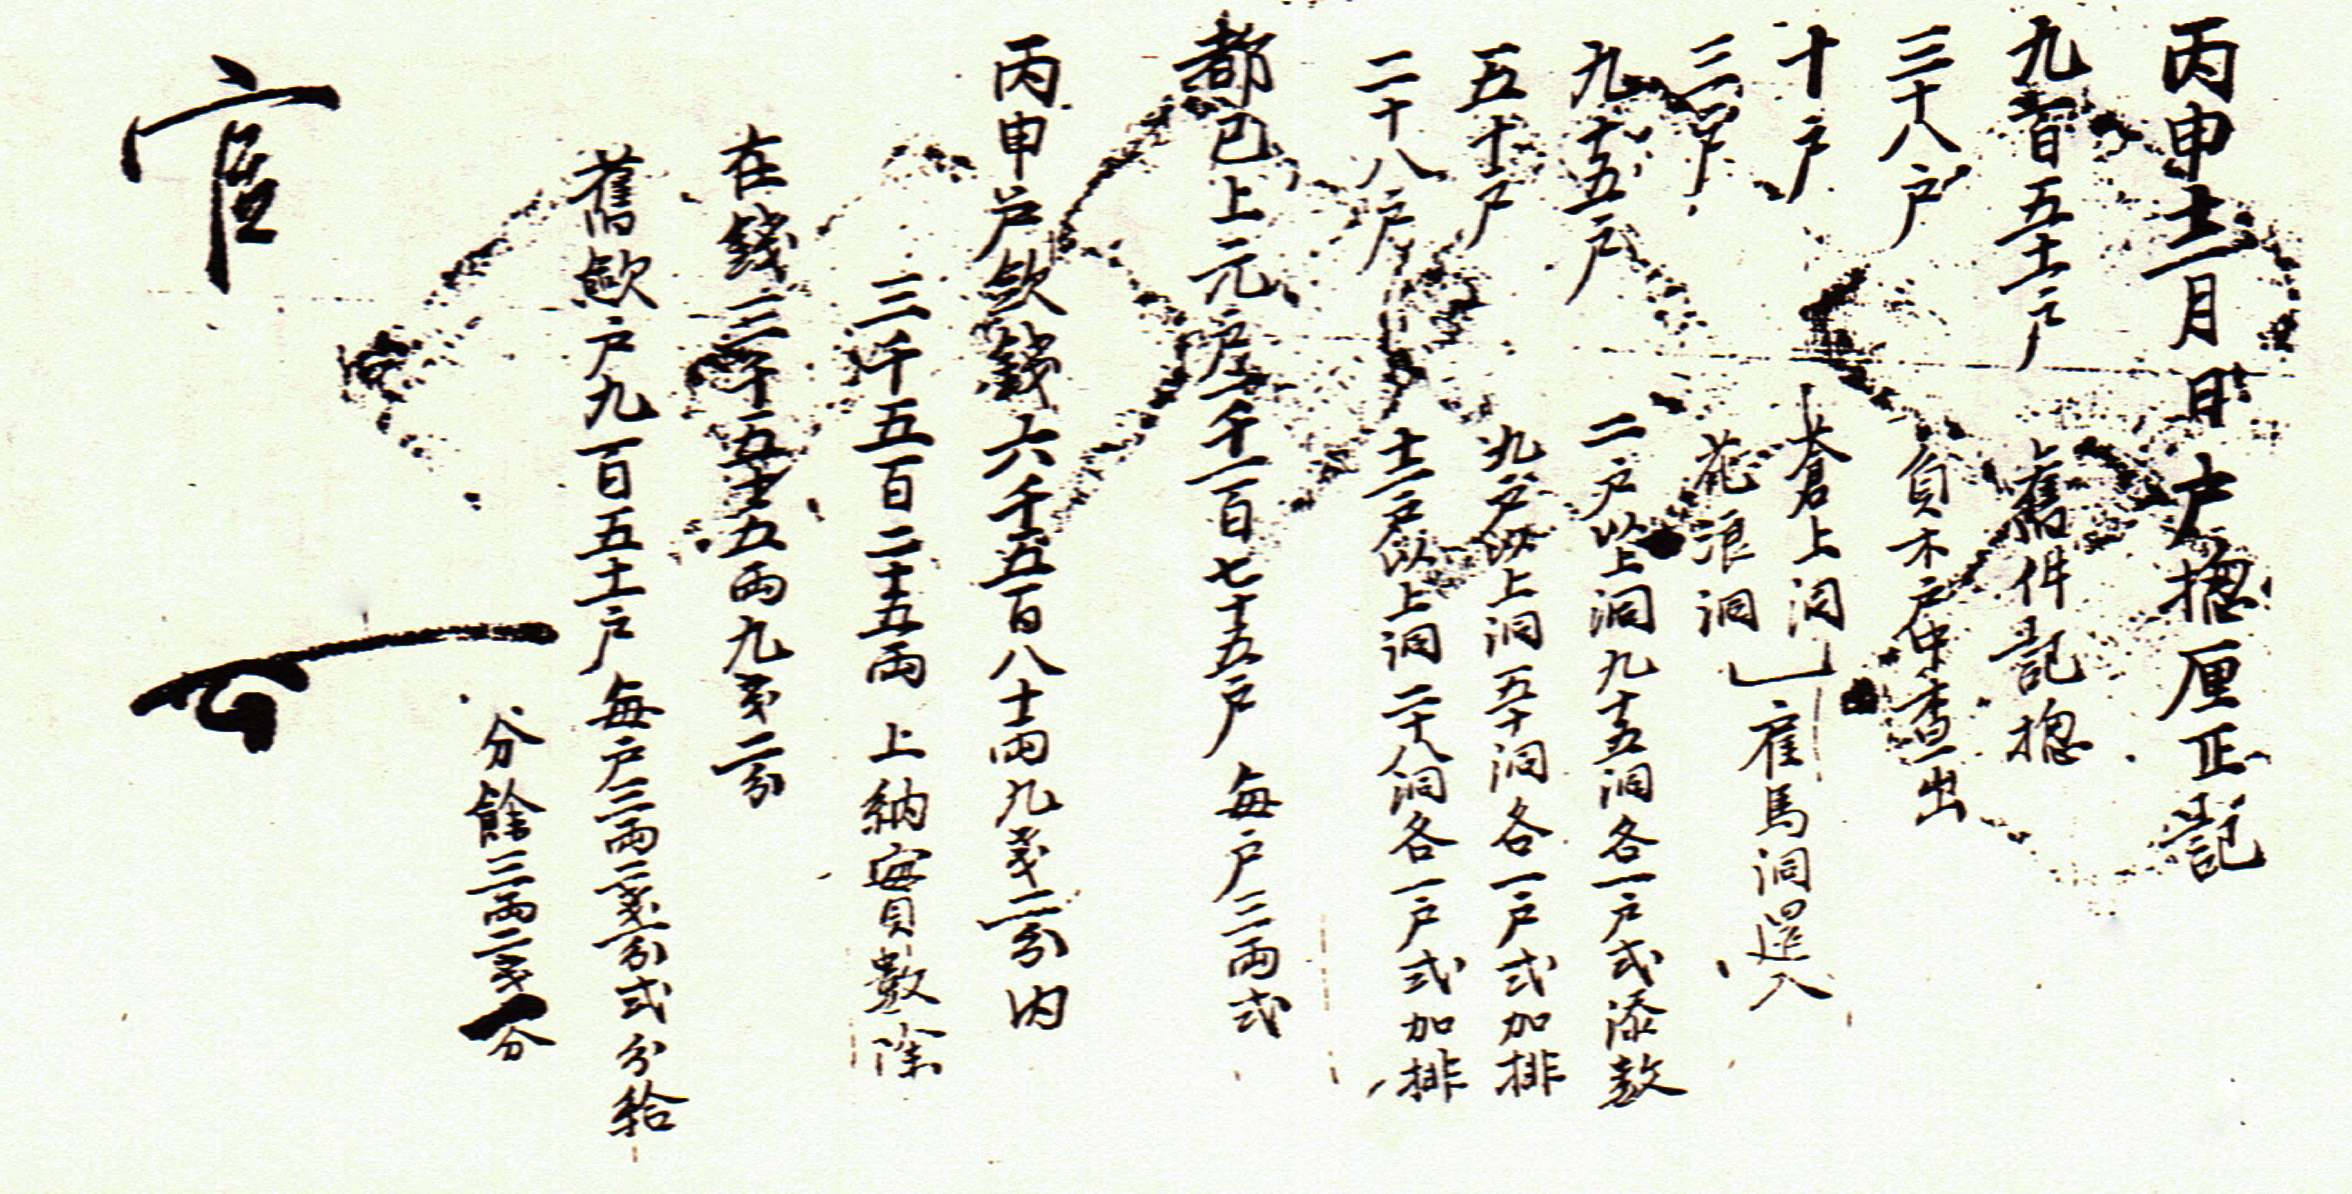 丙申十二月 日戶摠厘正記
九百五十一戶 舊件記摠
三十八戶 負木戶中查出
十戶 大倉上洞
三戶 花浪洞 雇馬洞還入
九十五戶 二戶以上洞九十五洞各一戶式添數
五十戶 九戶以上洞五十洞各一戶式加排
二十八戶 十二戶以上洞二十八洞各一戶式加排
都已上元戶一千一百七十五戶 每戶三兩式
丙申戶斂錢六千五百八十兩九戔二分內
三千五百二十五兩 上納實數除
在錢三千五十五兩九戔二分
舊斂戶九百五十一戶 每戶三兩二戔一分式分給
分餘三兩二戔一分
官